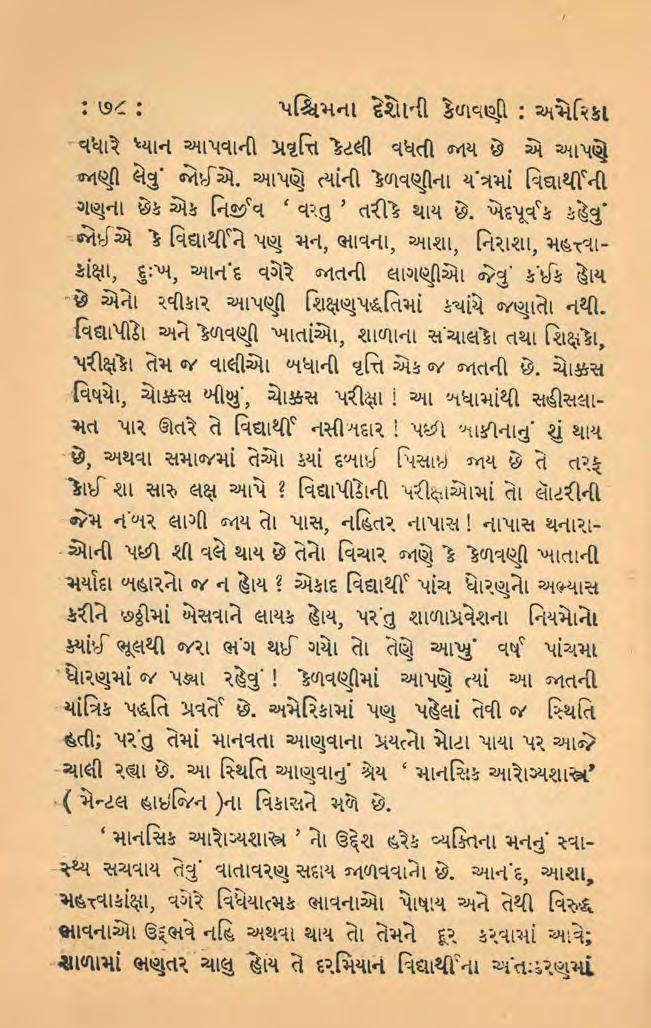 : ૭૮ : પશ્ચિમના દેશોની કેળવણી : અમેરિકા
વધારે ધ્યાન આપવાની પ્રવૃત્તિ કેટલી વધતી જાય છે એ આપણે
જાણી લેવું જોઈએ. આપણે ત્યાંની કેળવણીના યંત્રમાં વિદ્યાર્થીની
ગણના છેક એક નિર્જીવ ‘ વસ્તુ ’ તરીકે થાય છે. ખેદપૂર્વક કહેવું
જોઈએ કે વિદ્યાર્થીને પણ મન, ભાવના, આશા, નિરાશા, મહત્ત્વા-
કાંક્ષા, દુઃખ, આનંદ વગેરે જાતની લાગણીઓ જેવું કંઈક હોય
છે એનો સ્વીકાર આપણી શિક્ષણપદ્ધતિમાં ક્યાંયે જણાતો નથી.
વિદ્યાપીઠો અને કેળવણી ખાતાંઓ, શાળાના સંચાલકો તથા શિક્ષકો,
પરીક્ષકો તેમ જ વાલીઓ બધાની વૃત્તિ એક જ જાતની છે. ચોક્કસ
વિષયો, ચોક્કસ બીબું, ચોક્કસ પરીક્ષા ! આ બધામાંથી સહીસલા-
મત પાર ઊતરે તે વિદ્યાર્થી નસીબદાર ! પછી બાકીનાનું શું થાય
છે, અથવા સમાજમાં તેઓ કયાં દબાઈ પિસાઈ જાય છે તે તરફ
કોઈ શા સારુ લક્ષ આપે ? વિદ્યાપીઠોની પરીક્ષાઓમાં તો લૉટરીની
જેમ નંબર લાગી જાય તો પાસ, નહિતર નાપાસ ! નાપાસ થનારા-
ઓની પછી શી વલે થાય છે તેનો વિચાર જાણે કે કેળવણી ખાતાની
મર્યાદા બહારનો જ ન હોય ? એકાદ વિદ્યાર્થી પાંચ ધોરણનો અભ્યાસ
કરીને છઠ્ઠીમાં બેસવાને લાયક હોય, પરંતુ શાળાપ્રવેશના નિયમોનો
ક્યાંઈ ભૂલથી જરા ભંગ થઈ ગયો તો તેણે આખું વર્ષ પાંચમા
ધોરણમાં જ પડ્યા રહેવું ! કેળવણીમાં આપણે ત્યાં આ જાતની
યાંત્રિક પદ્ધતિ પ્રવર્તે છે. અમેરિકામાં પણ પહેલાં તેવી જ સ્થિતિ
હતી; પરંતુ તેમાં માનવતા આણવાના પ્રયત્નો મોટા પાયા પર આજે
ચાલી રહ્યા છે. આ સ્થિતિ આણવાનું શ્રેય ‘ માનસિક આરોગ્યશાસ્ત્ર’
( મેન્ટલ હાઇજિન )ના વિકાસને મળે છે.
‘ માનસિક આરોગ્યશાસ્ત્ર ’ નો ઉદ્દેશ હરેક વ્યક્તિના મનનું સ્વા-
સ્થ્ય સચવાય તેવું વાતાવરણ સદાય જાળવવાનો છે. આનંદ, આશા,
મહત્ત્વાકાંક્ષા, વગેરે વિધેયાત્મક ભાવનાઓ પોષાય અને તેથી વિરુદ્ધ
ભાવનાઓ ઉદ્ભવે નહિ અથવા થાય તો તેમને દૂર કરવામાં આવે;
શાળામાં ભણતર ચાલુ હોય તે દરમિયાન વિદ્યાર્થીના અંતઃકરણમાં